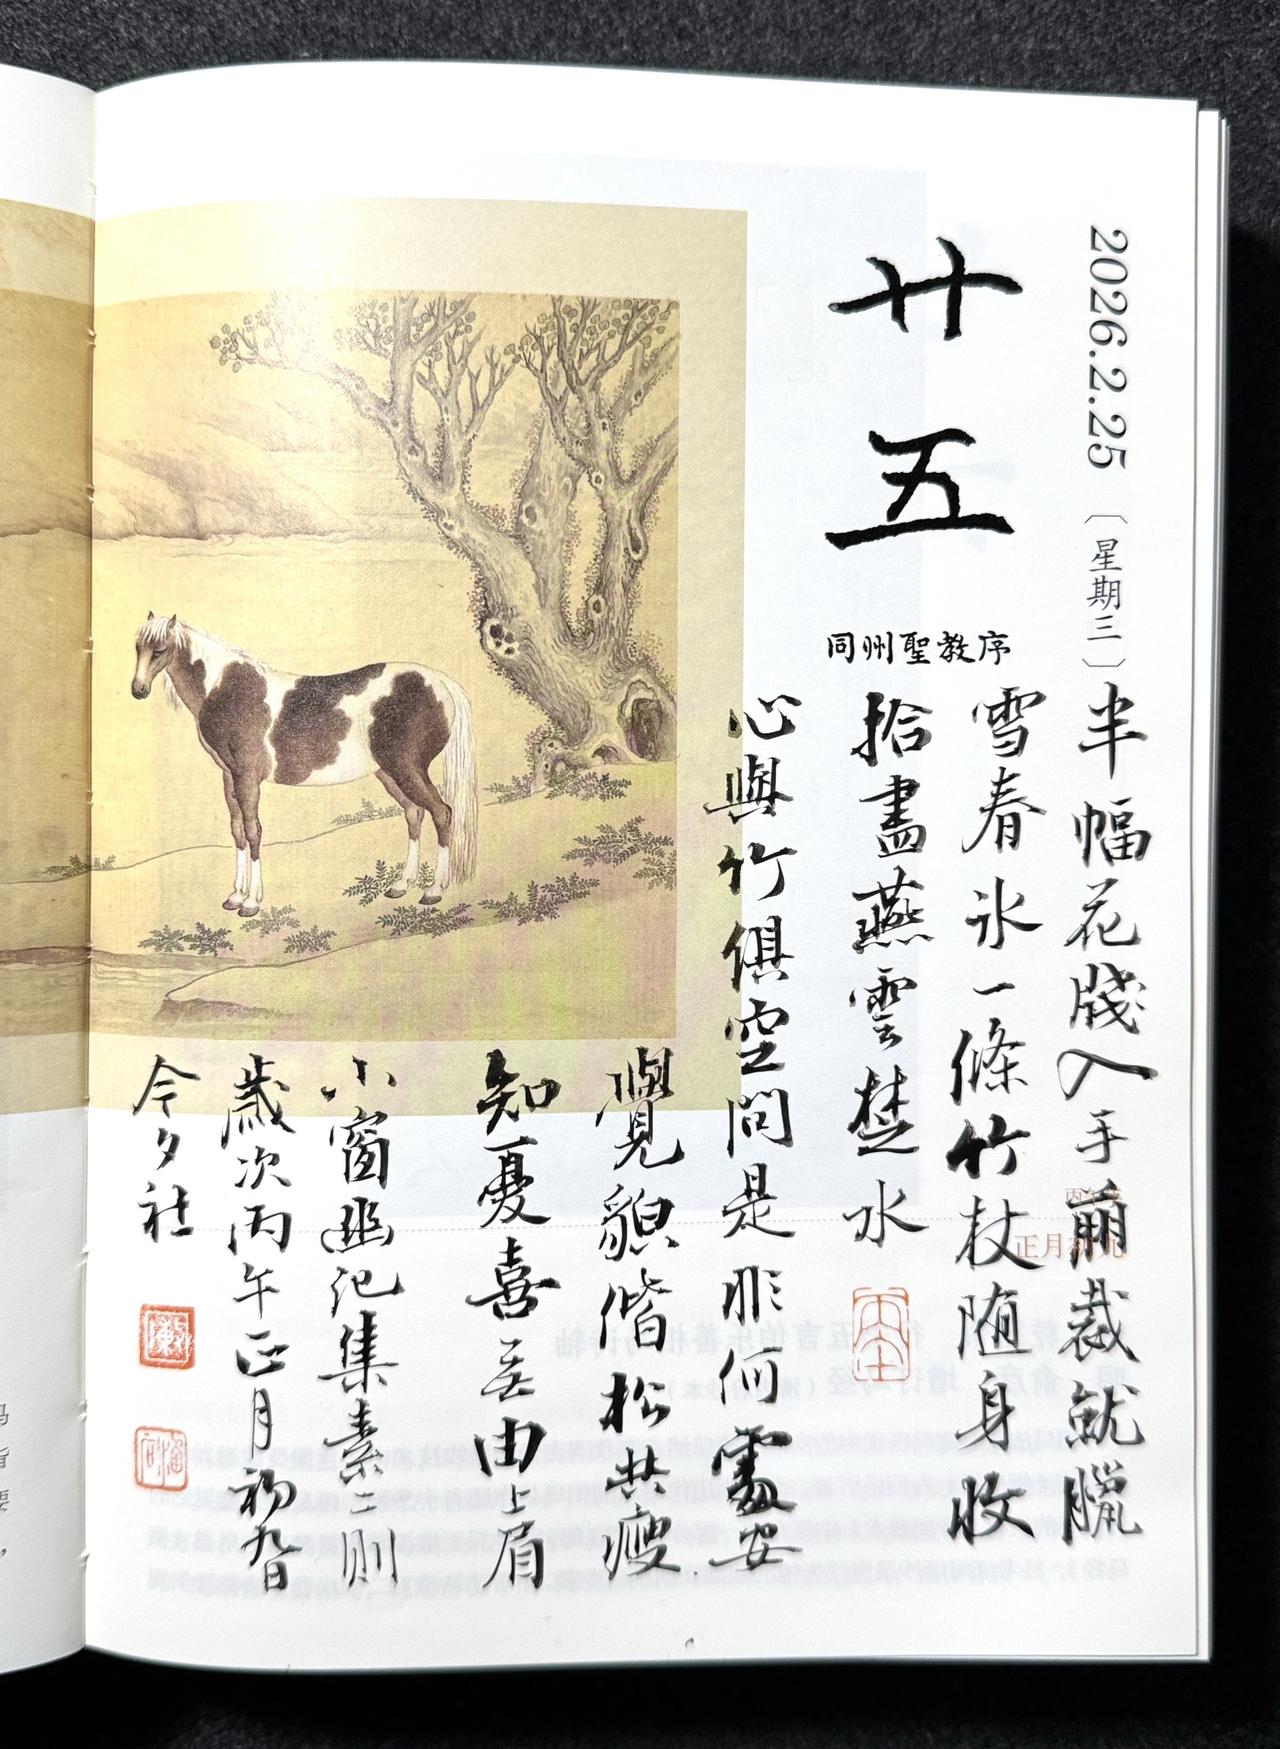 2026.2.25〔星期三〕
廿五
同州聖教序
半幅花牋入手剪裁就臘
正月初九
雪春冰一條竹杖随身收
拾盡燕雲楚水
心與竹俱空問是非何處安
覺貌偕松共瘦
知憂喜无由上眉
小窗幽記集素二則
歲次丙午正月初九日
今夕社